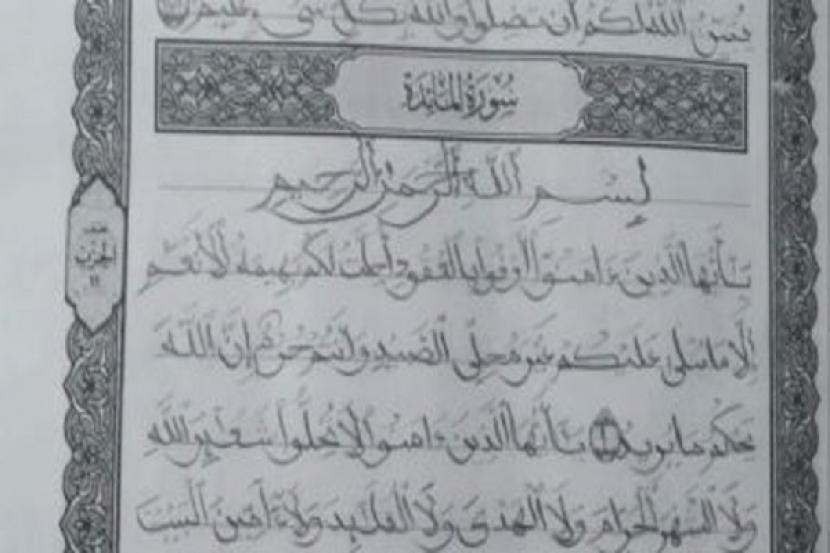 يبين الله لكم أن تضلوا والله بكل شىء عليم
سورة المائدة
بسم الله الرحمن الرحيم
يـأيها الذين ءامنوا أوفوا بالعقود أحلت لكم بهيمة الأنعم
إلا ما يتلى عليكم غير محلى الصيد وأنتم حرم إن الله
يحكم ما يريد ١ يـأيها الذين ءامنوا لا تحلوا شعئر الله
ولا الشهر الحرام ولا الهدى ولا القلئد ولا ءامين البيت
نصف
الحزب
١١